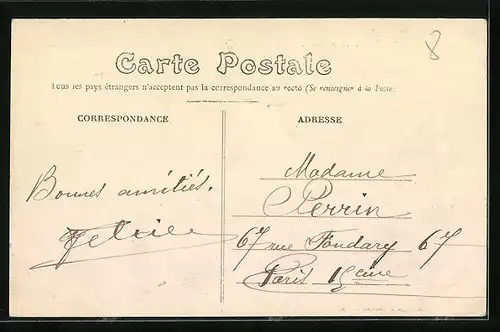 8
Carte Postale
Tous les pays étrangers n'acceptent pas la correspondance au recto (Se renseigner à la Poste)
CORRESPONDANCE
ADRESSE
Bonnes amitiés.
Madame
Perrin
67 rue Fondary 67
Paris 15eme